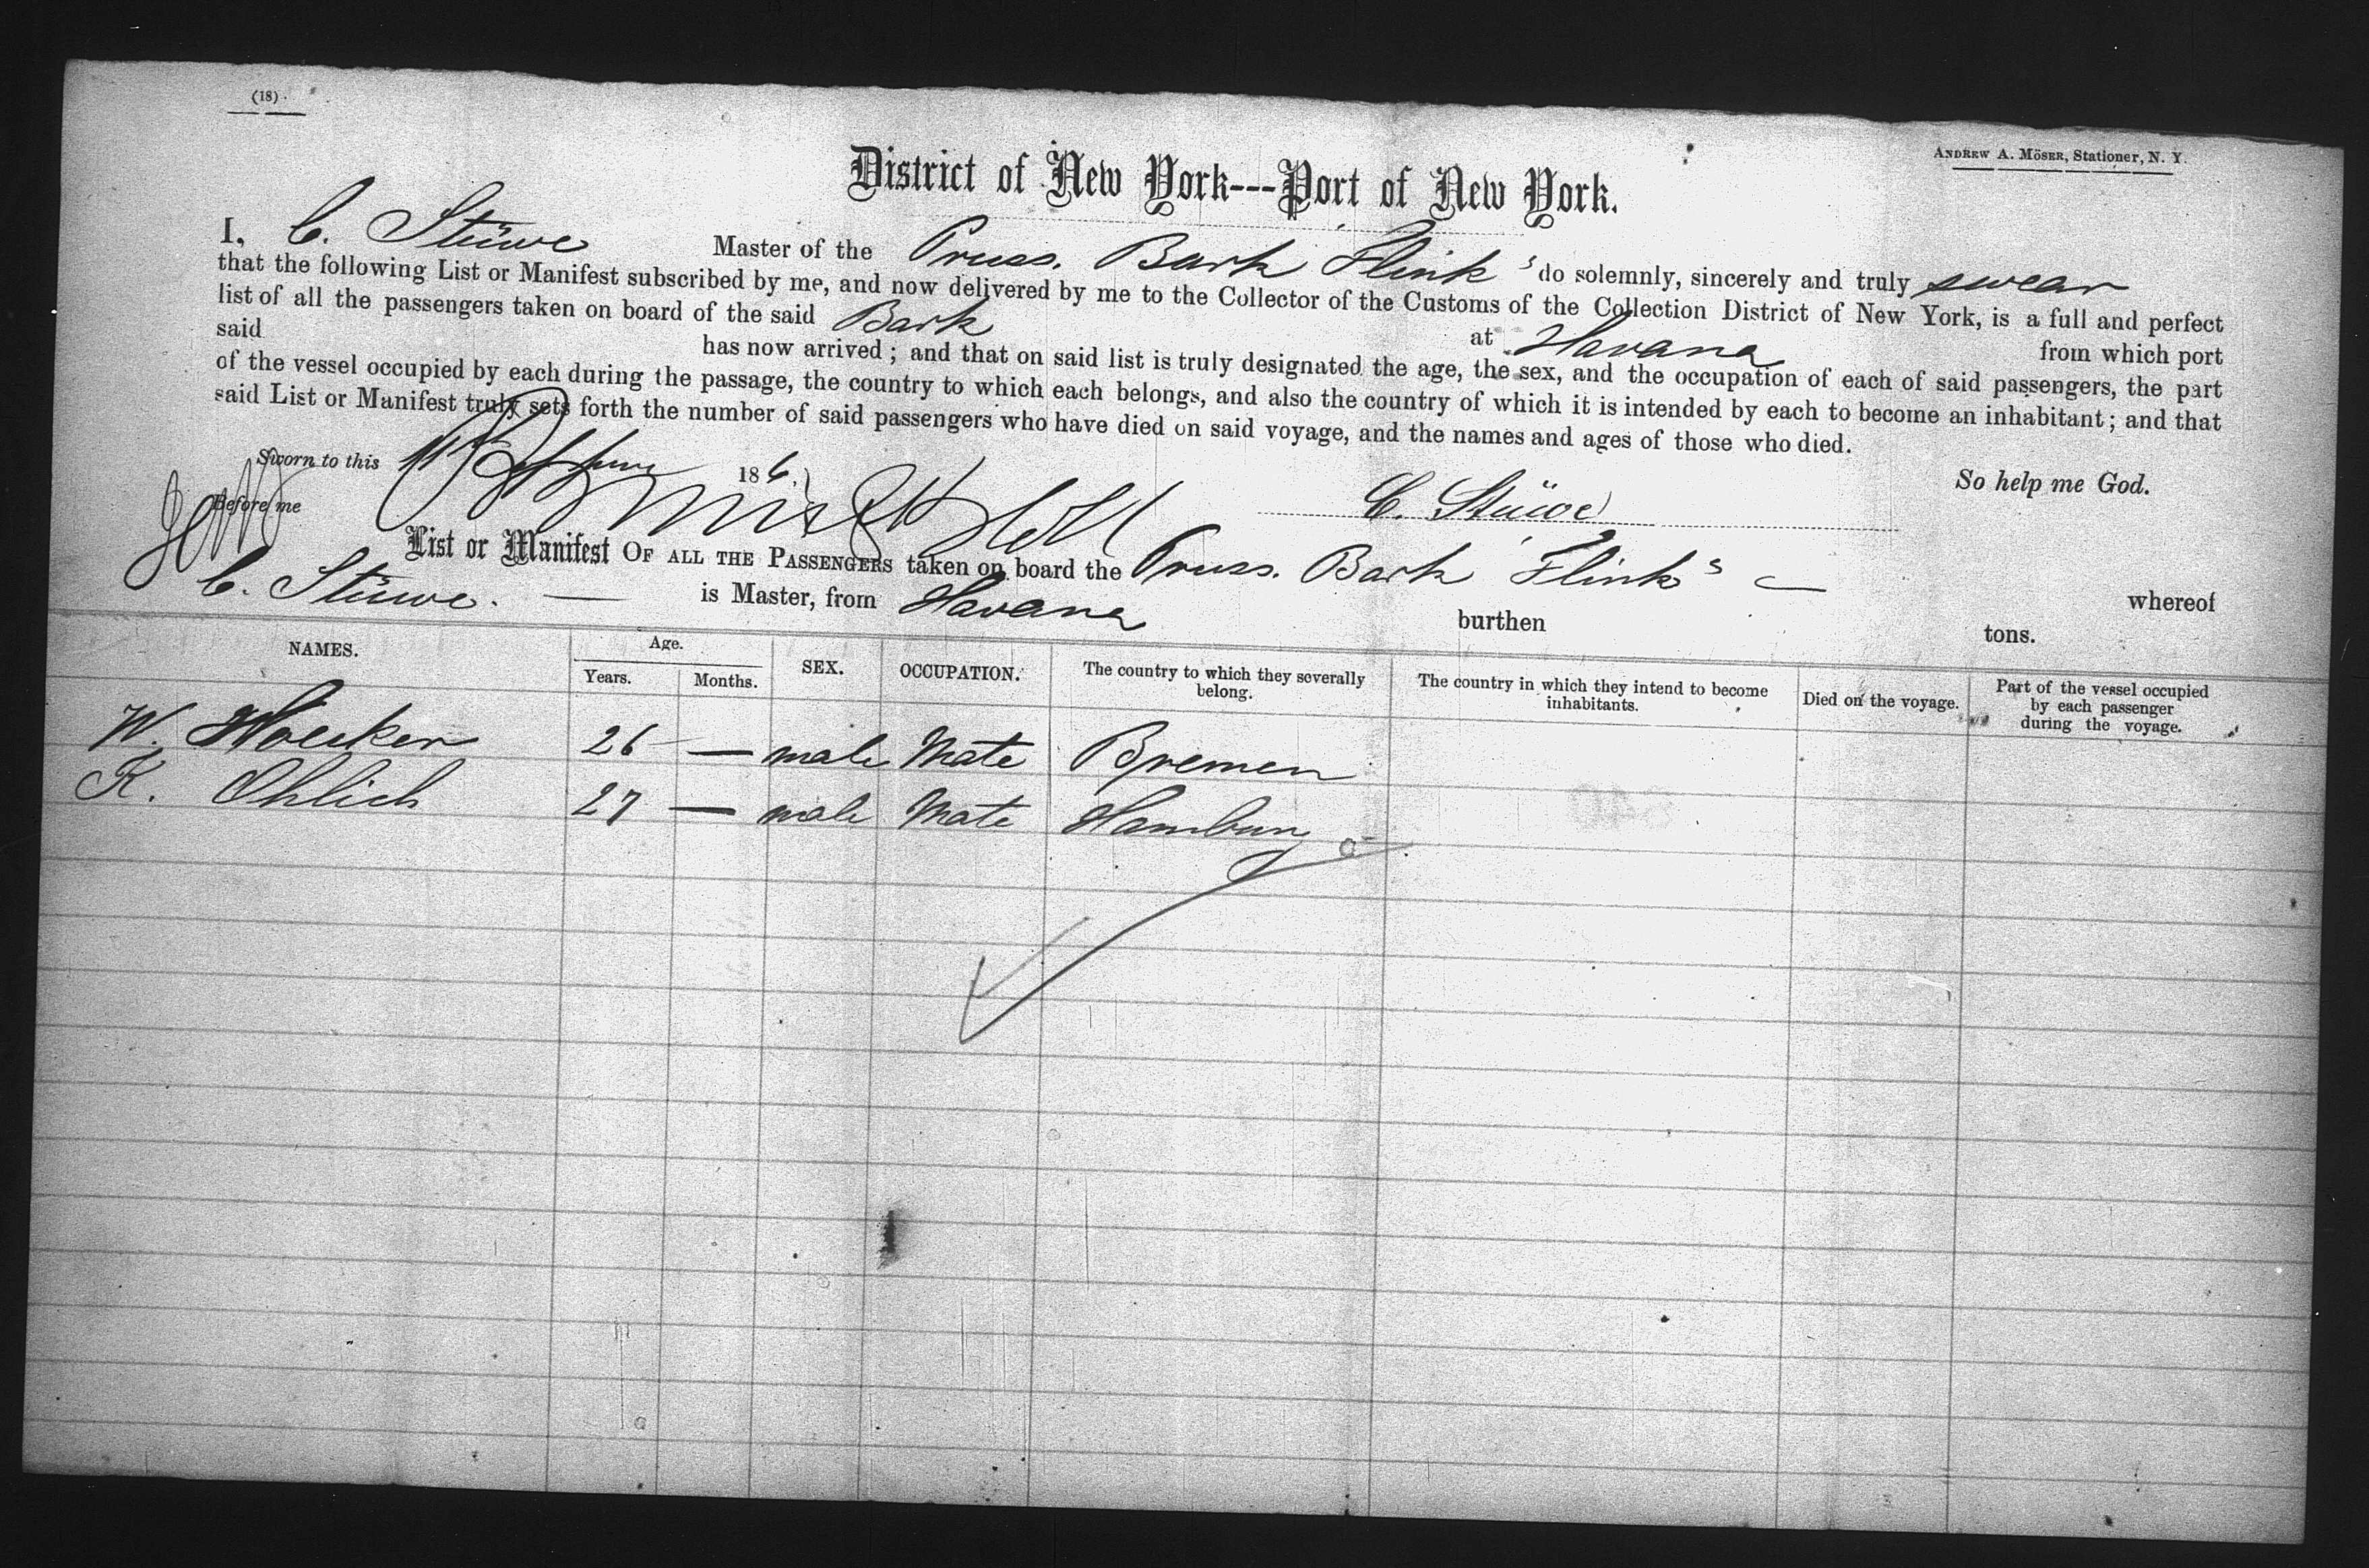 (18)
ANDREW A. MÖSER, Stationer, N. Y.
District of New York---Port of New York.
I, C. Stüwe Master of the Pruss. Bark Flink do solemnly, sincerely and truly swear
that the following List or Manifest subscribed by me, and now delivered by me to the Collector of the Customs of the Collection District of New York, is a full and perfect
list of all the passengers taken on board of the said Bark at Havana from which port
said has now arrived; and that on said list is truly designated the age, the sex, and the occupation of each of said passengers, the part
of the vessel occupied by each during the passage, the country to which each belongs, and also the country of which it is intended by each to become an inhabitant; and that
said List or Manifest truly sets forth the number of said passengers who have died on said voyage, and the names and ages of those who died.
So help me God.
Sworn to this 186
Before me
C. Stüwe
List or Manifest OF ALL THE PASSENGERS taken on board the Pruss. Bark Flink whereof
C. Stüwe. is Master, from Havana burthen tons.
NAMES. Age. Years. Months. SEX. OCCUPATION. The country to which they severally belong. The country in which they intend to become inhabitants. Died on the voyage. Part of the vessel occupied by each passenger during the voyage.
W. 26 — male Mate Bremen
K. Ohlich 27 — male Mate Hamburg